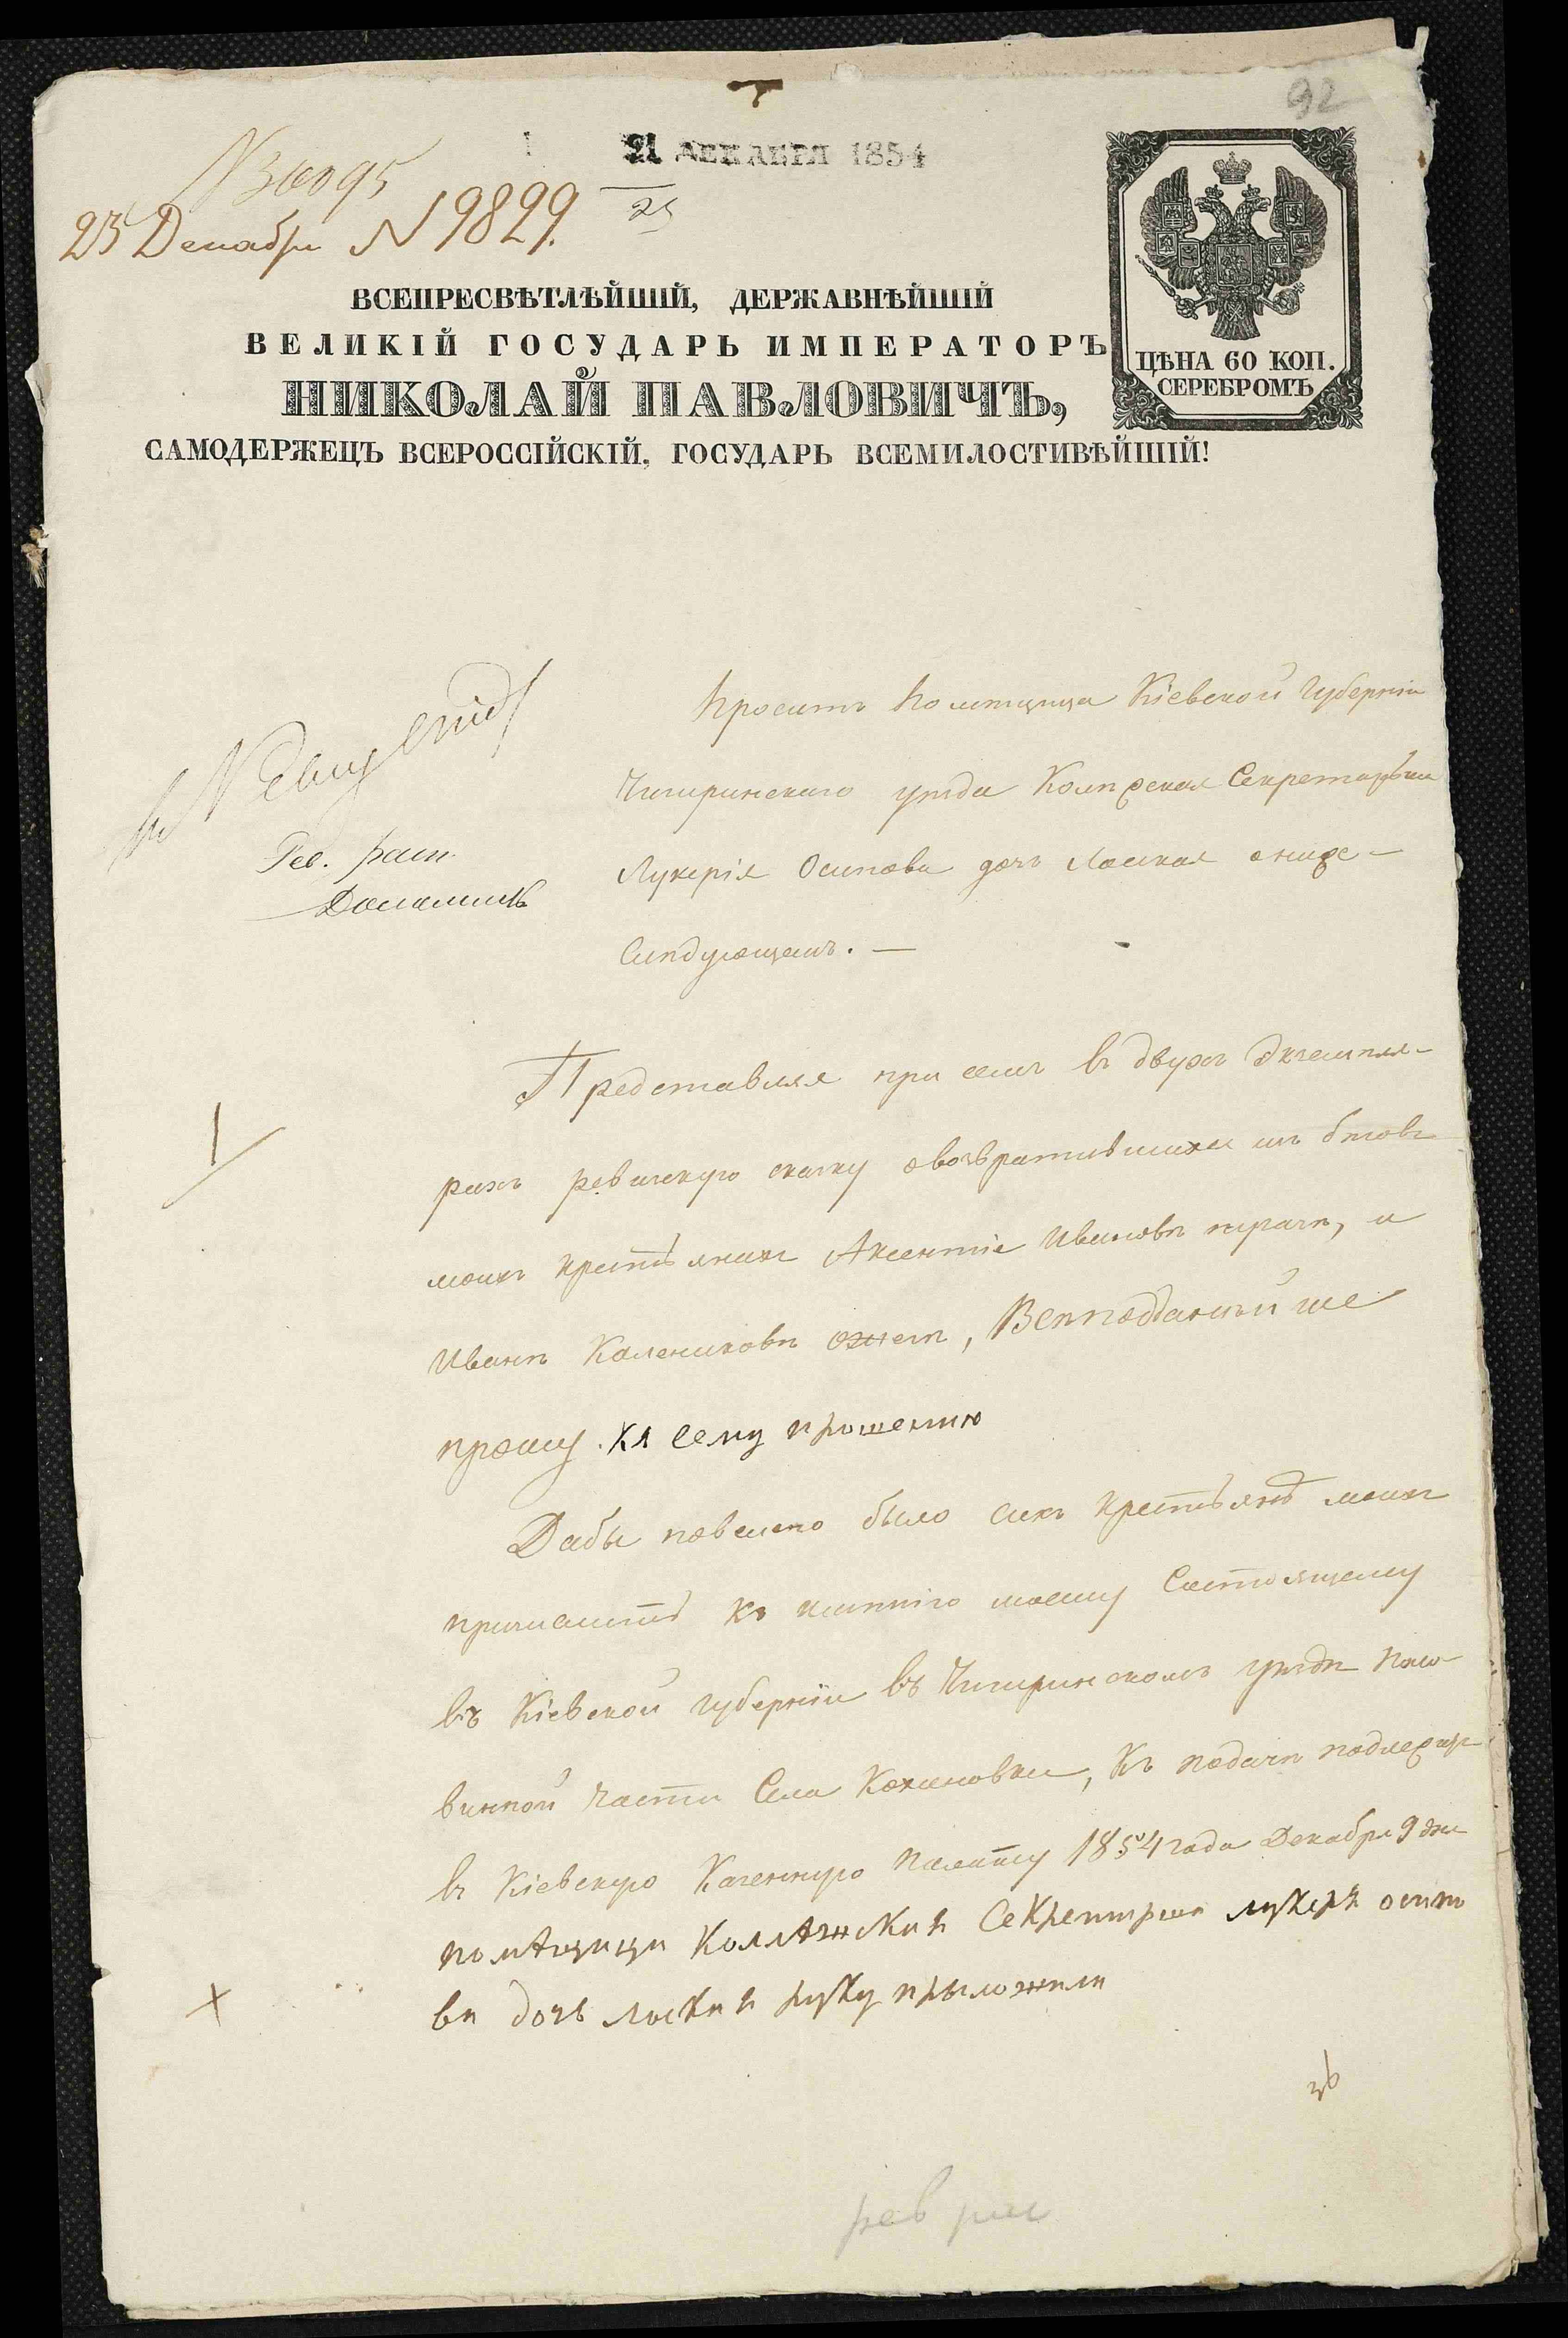 92
21 ДЕКАБРЯ 1854
25
23 Декабря N 9829.
ВСЕПРЕСВѢТЛѢЙШІЙ, ДЕРЖАВНѢЙШІЙ
ВЕЛИКІЙ ГОСУДАРЬ ИМПЕРАТОРЪ
НИКОЛАЙ ПАВЛОВИЧЪ,
САМОДЕРЖЕЦЪ ВСЕРОССІЙСКІЙ, ГОСУДАРЬ ВСЕМИЛОСТИВѢЙШІЙ!
ЦѢНА 60 КОП.
СЕРЕБРОМЪ
Проситъ Помѣщица Кіевской Губерніи
Чигиринскаго уѣзда Колежская Секретарша
Лукерія Осипова дочь Лоская о ниже-
Слѣдующемъ. —
Представляя при семъ въ двухъ Экземпля-
рахъ ревизскую сказку о возвратившихся изъ бѣговъ
моихъ крестьянахъ Аксентіе Ивановѣ, и
Иванѣ Калениковѣ, Всеподданнѣйше
прошу. Къ сему прошению
Дабы повелено было сихъ крестьянъ моихъ
причислить къ имѣнію моему Состоящему
въ Кіевской губерніи въ Чигиринскомъ уѣздѣ поло-
винной части Села, Къ подачѣ подлежитъ
въ Кіевскую Казенную Палату 1854 года Декабря 9 дня
помѣщица Коллежская Секретарша Лукеря осипо
ва дочь Лоская руку приложила
рев